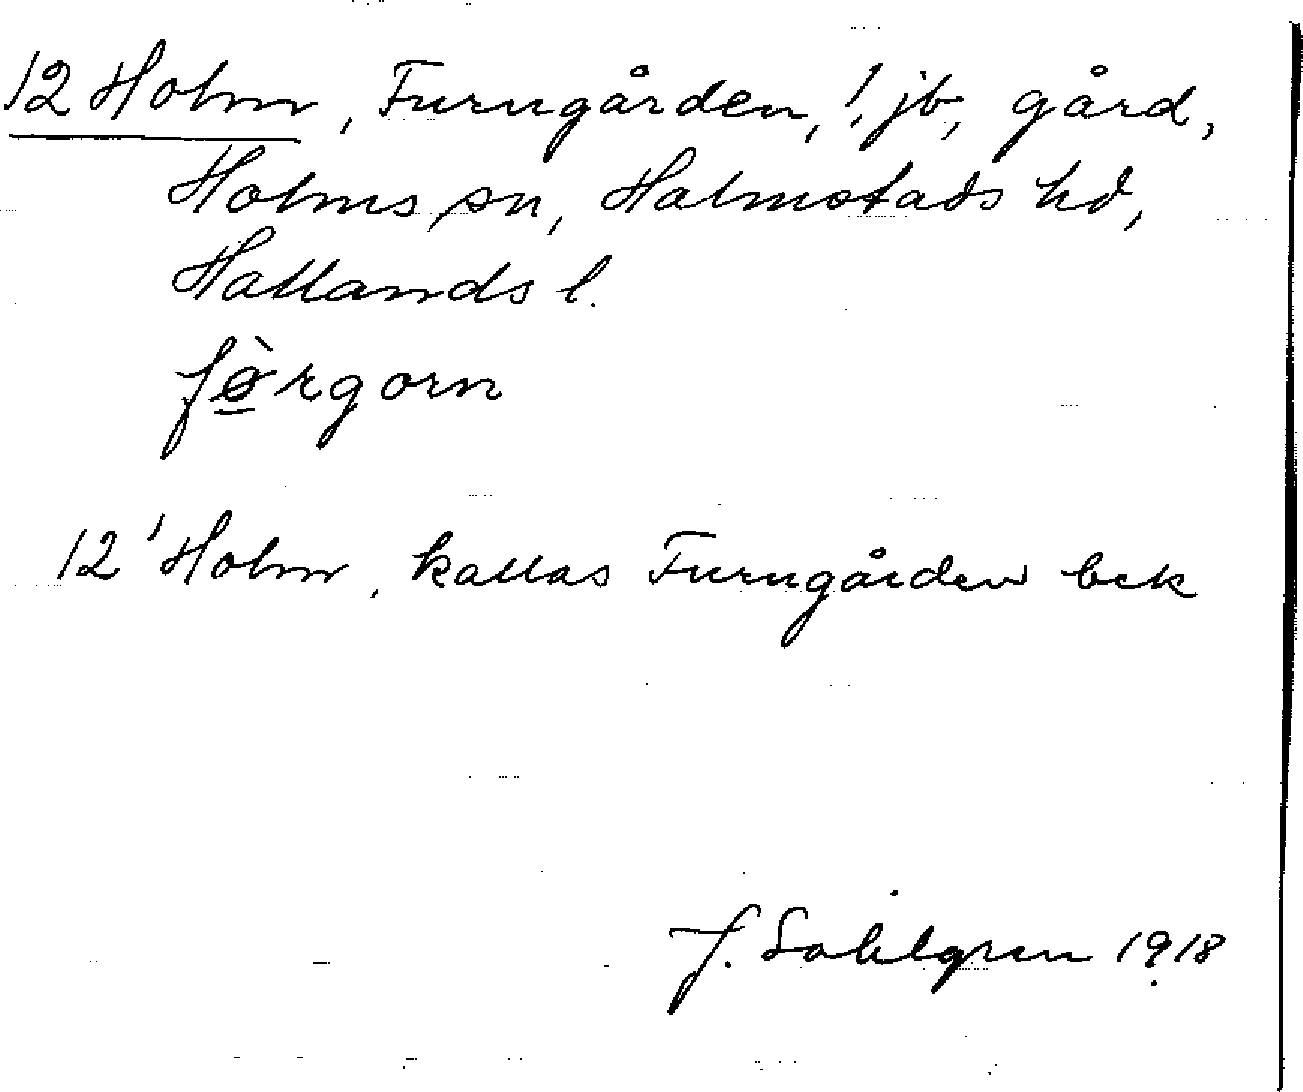 12 Holm, Furugården, !, jb, gård,
Holms sn, Halmstads hd,
Hallands l.
fø̀rgorn
12 Holm, kallas Furugården bek
J. Sahlgren 1918